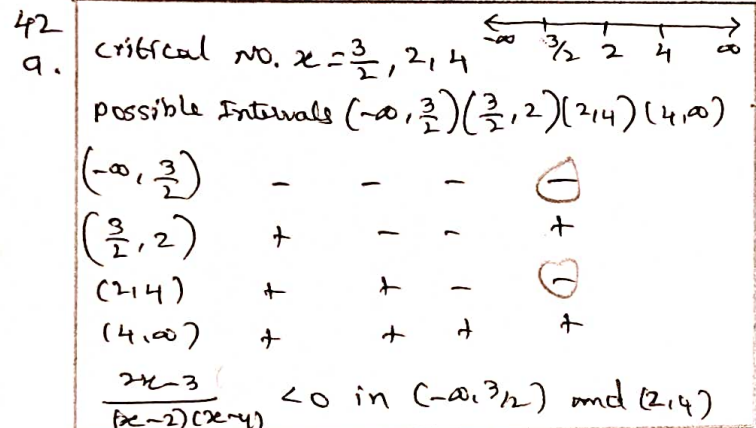 42
a. critical NO. x = 3/2, 2, 4   -∞ 3/2 2 4 ∞
possible Intervals (-∞, 3/2) (3/2, 2) (2,4) (4,∞)
(-∞, 3/2) - - - -
(3/2, 2) + - - +
(2,4) + + - -
(4,∞) + + + +
2x-3/(x-2)(x-4) <0 in (-∞, 3/2) and (2,4)